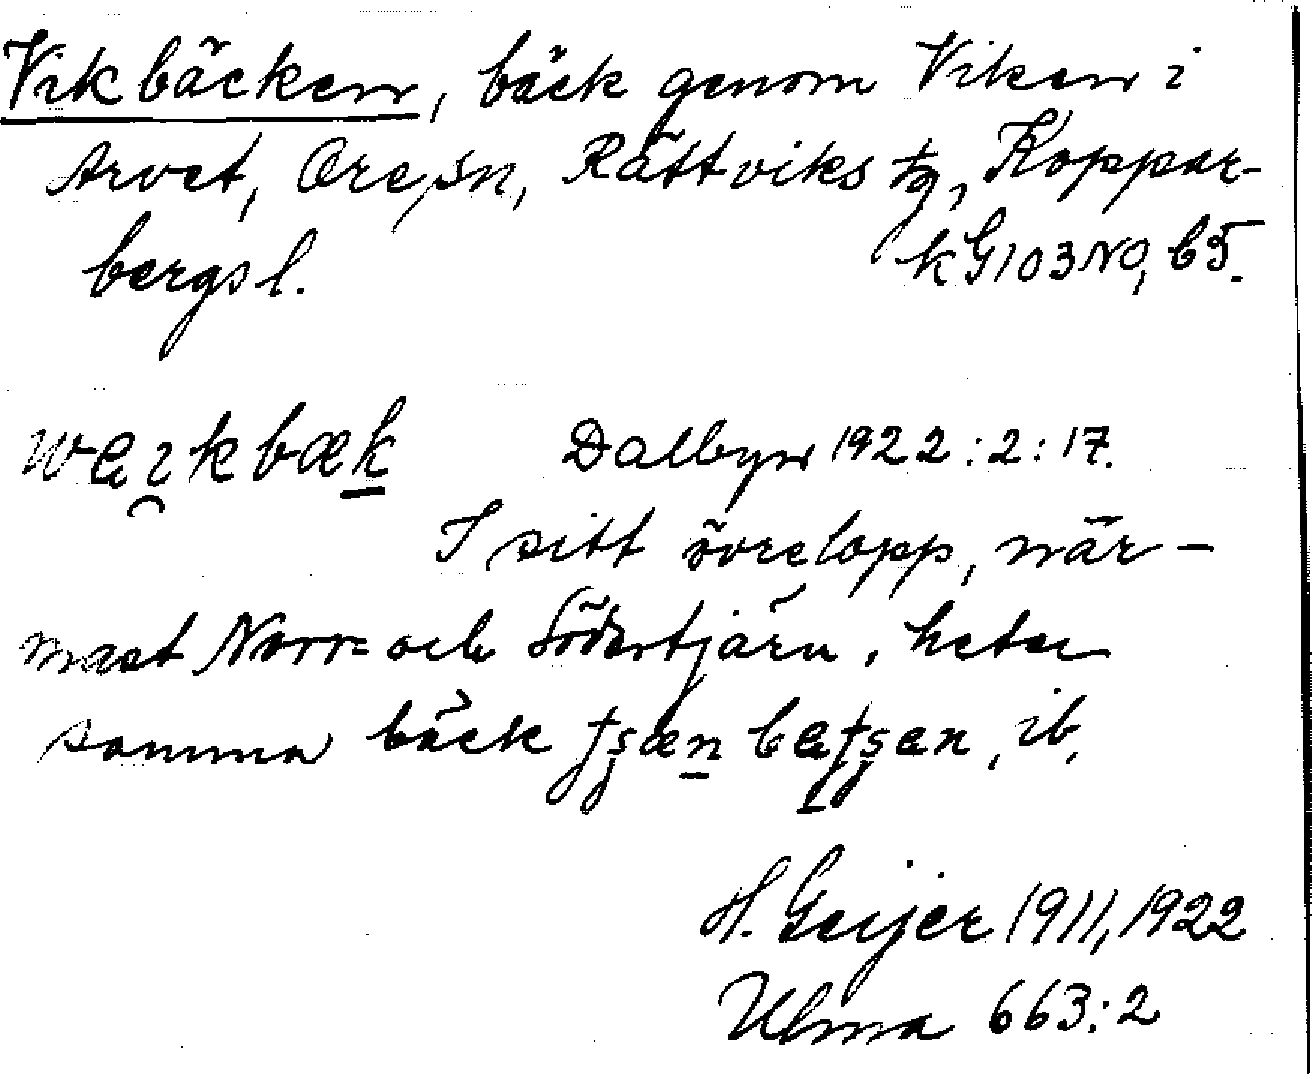 Vikbäcken, bäck genom Viken i
Arvet, Ore sn, Rättviks tg, Koppar-
bergs l.
kG103NO, b5.
waıkbæk Dalbyn 1922:2:17.
I sitt övre lopp, när-
mast Norr- och Södertjärn, heter
samma bäck
ib.
H. Geijer 1911, 1922
Ulma 663:2